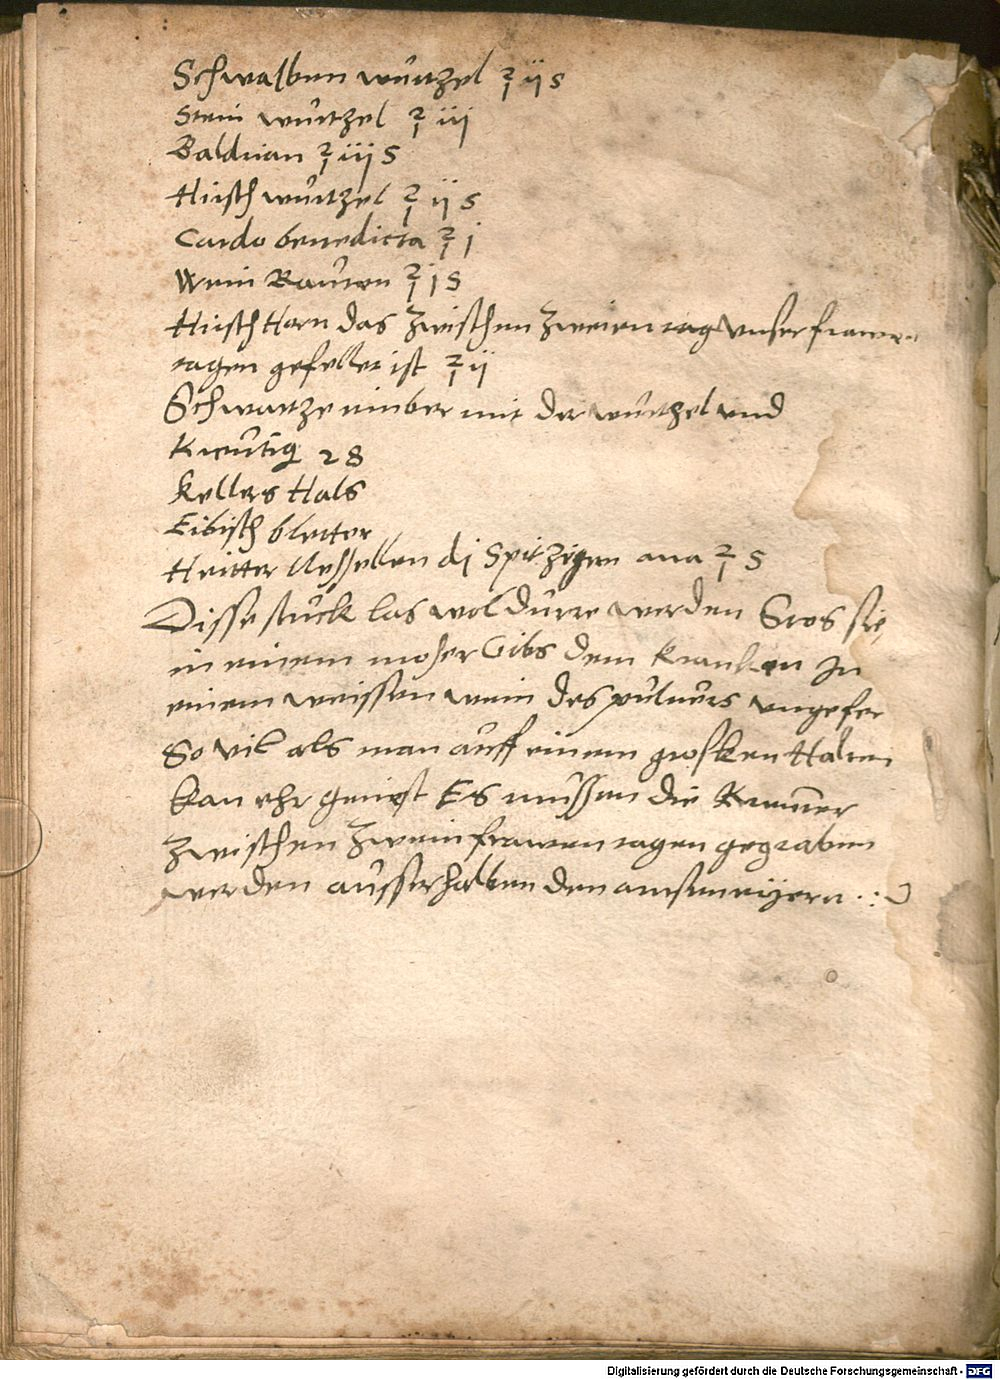 Schwalben wurtzel ℥ ijs
Stein wurtzel ℥ iij
Baldrian ℥ iijs
Hirsch wurtzel ℥ ijs
Cardo benedicta ℥ j
Wein Rauten ℥ js
Hirsch Horn das zwischen zweien tag unser frawen
tagen gefellet ist ℥ ij
Schwartze mit der wurtzel und

Kellers Hals
Eibisch bletter
Heitter Nessellen di Spitzigen ana ℥ s
Disse stuck las wol durre werden Stos sie
in einem moser Gibs dem krancken In
einem weissen wein des pulvers ungefer
So vil als man auff einem grosken Halten
kan ehr genist Es mussen die Kreuter
zwischen zwein frawen tagen gegraben
werden ausserhalben den amsen eijern
Digitalisierung gefördert durch die Deutsche Forschungsgemeinschaft - DFG